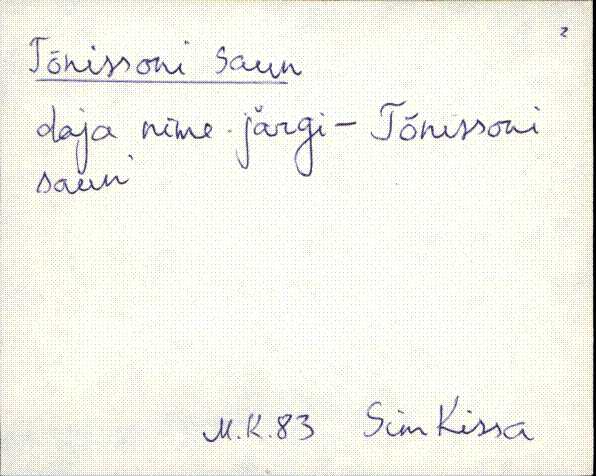 2
Tõnissoni saun
daja nime järgi – Tõnissoni
saun
M.K.83 Sim Kissa